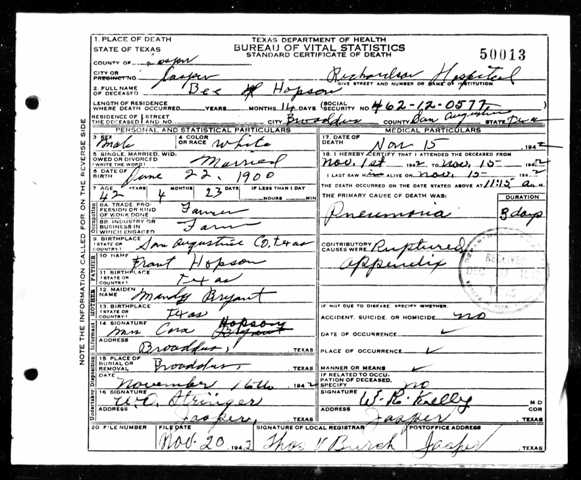 TEXAS DEPARTMENT OF HEALTH
BUREAU OF VITAL STATISTICS
STANDARD CERTIFICATE OF DEATH
50013
1. PLACE OF DEATH
STATE OF TEXAS
COUNTY OF Jasper
CITY OR PRECINCT NO. Jasper Richardson Hospital
GIVE STREET AND NUMBER OR NAME OF INSTITUTION
2. FULL NAME OF DECEASED Bee Hopson
LENGTH OF RESIDENCE WHERE DEATH OCCURRED YEARS MONTHS 14 DAYS SOCIAL SECURITY NO. 462-12-0577
RESIDENCE OF THE DECEASED STREET AND NO. CITY Broaddus COUNTY San Augustine STATE Texas
PERSONAL AND STATISTICAL PARTICULARS
3. SEX Male 4. COLOR OR RACE White
5. SINGLE, MARRIED, WIDOWED OR DIVORCED (WRITE THE WORD) Married
6. DATE OF BIRTH June 22, 1900
7. AGE 42 YEARS 4 MONTHS 23 DAYS IF LESS THAN 1 DAY HOURS MIN.
8A. TRADE, PROFESSION OR KIND OF WORK DONE Farmer
8B. INDUSTRY OR BUSINESS IN WHICH ENGAGED Farm
9. BIRTHPLACE (STATE OR COUNTRY) San Augustine Co, Texas
10. NAME Frank Hopson
11. BIRTHPLACE (STATE OR COUNTRY) Texas
12. MAIDEN NAME Mandy Bryant
13. BIRTHPLACE (STATE OR COUNTRY) Texas
14. SIGNATURE Mrs Cora Hopson
ADDRESS Broaddus, TEXAS
15. PLACE OF BURIAL OR REMOVAL Broaddus, TEXAS
November 16th 1942
16. SIGNATURE Stringer
ADDRESS Jasper, TEXAS
MEDICAL PARTICULARS
17. DATE OF DEATH Nov 15 1942
18. I HEREBY CERTIFY THAT I ATTENDED THE DECEASED FROM
Nov. 1st 1942 TO Nov. 15- 1942
I LAST SAW him ALIVE ON Nov. 15- 1942
THE DEATH OCCURRED ON THE DATE STATED ABOVE AT 11:15 a. M.
THE PRIMARY CAUSE OF DEATH WAS: DURATION
Pneumonia 3 days
CONTRIBUTORY CAUSES WERE Ruptured
appendix
IF NOT DUE TO DISEASE, SPECIFY WHETHER
ACCIDENT, SUICIDE OR HOMICIDE no
DATE OF OCCURRENCE
PLACE OF OCCURRENCE
MANNER OR MEANS
IF RELATED TO OCCUPATION OF DECEASED, SPECIFY no
SIGNATURE W. R. Kelley M D
ADDRESS Jasper COR TEXAS
20. FILE NUMBER FILE DATE Nov. 20 1942 SIGNATURE OF LOCAL REGISTRAR Thos Burch POSTOFFICE ADDRESS Jasper TEXAS
NOTE THE INFORMATION CALLED FOR ON THE REVERSE SIDE
Occupation
FATHER
MOTHER
Informant
Disposition
Undertaker